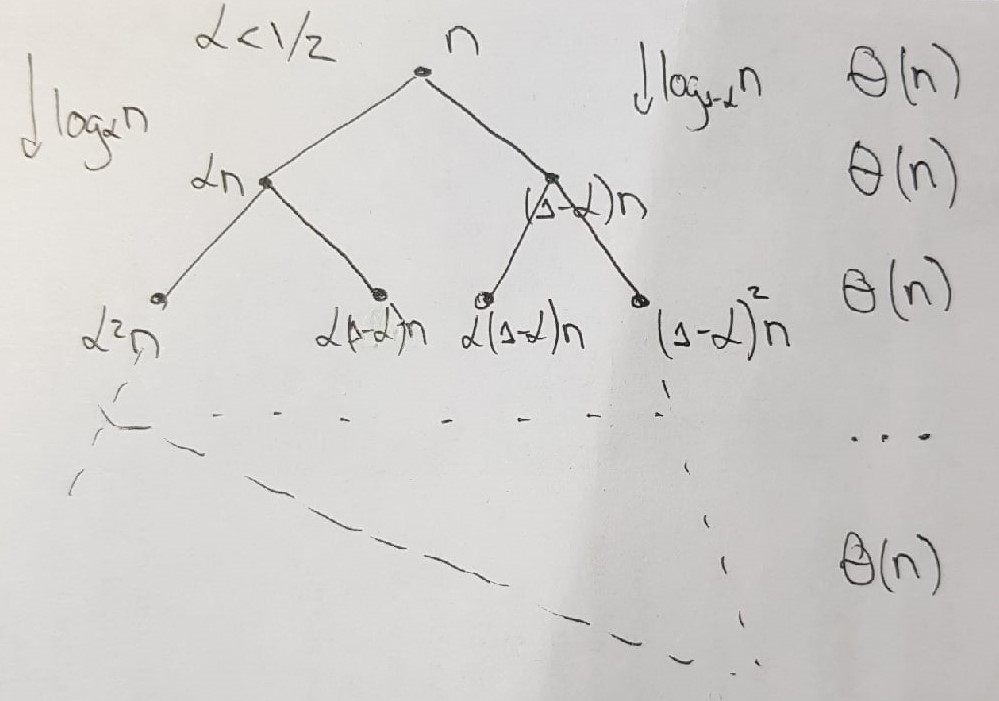 α<1/2 n
↓log_α n ↓log_{1-α} n Θ(n)
αn (1-α)n Θ(n)
α²n α(1-α)n α(1-α)n (1-α)²n Θ(n)
...
Θ(n)